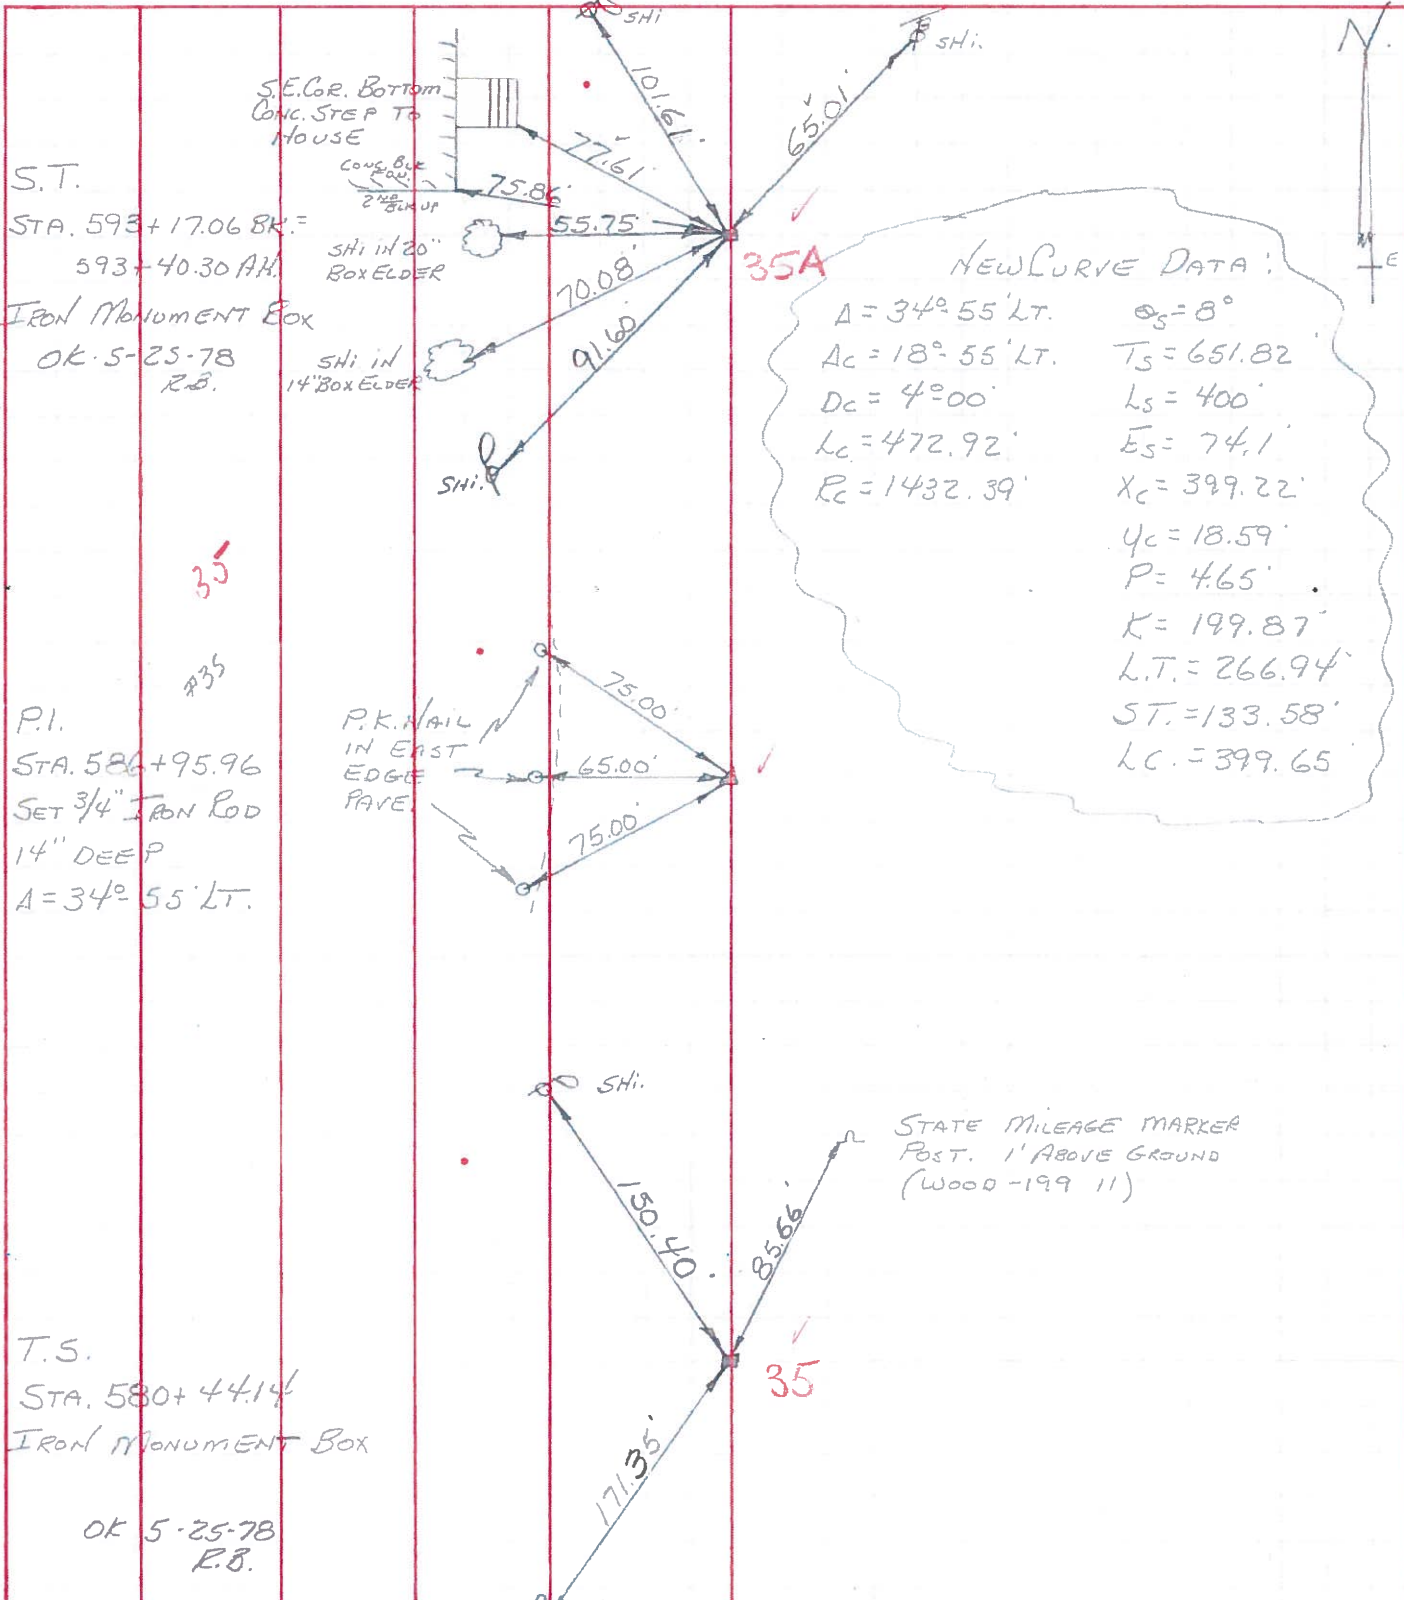 SHi
SHi.
N.
E
S.E.COR. BOTTOM
CONC. STEP TO
HOUSE
CONC. BLK
FDN.
2ND BLK UP
101.61'
65.01'
77.61'
75.86'
55.75'
70.08'
91.60'
S.T.
STA. 593+17.06 BK. =
593+40.30 AH.
IRON MONUMENT BOX
OK 5-25-78
R.B.
SHi IN 20"
BOX ELDER
SHi IN
14" BOX ELDER
SHi.
35A
NEW CURVE DATA:
Δ = 34°-55' LT.
Δc = 18°-55' LT.
Dc = 4°00'
Lc = 472.92'
Rc = 1432.39'
Θs = 8°
Ts = 651.82'
Ls = 400'
Es = 74.1'
Xc = 399.22'
Yc = 18.59'
P = 4.65'
K = 199.87'
L.T. = 266.94'
S.T. = 133.58'
LC. = 399.65'
35
#35
P.I.
STA. 586+95.96
SET 3/4" IRON ROD
14" DEEP
Δ = 34°-55' LT.
P.K. NAIL
IN EAST
EDGE
PAVE.
75.00'
65.00'
75.00'
SHi.
STATE MILEAGE MARKER
POST. 1' ABOVE GROUND
(WOOD -199 11)
150.40'
85.66'
35
T.S.
STA. 580+44.14
IRON MONUMENT BOX
OK 5-25-78
R.B.
171.35'